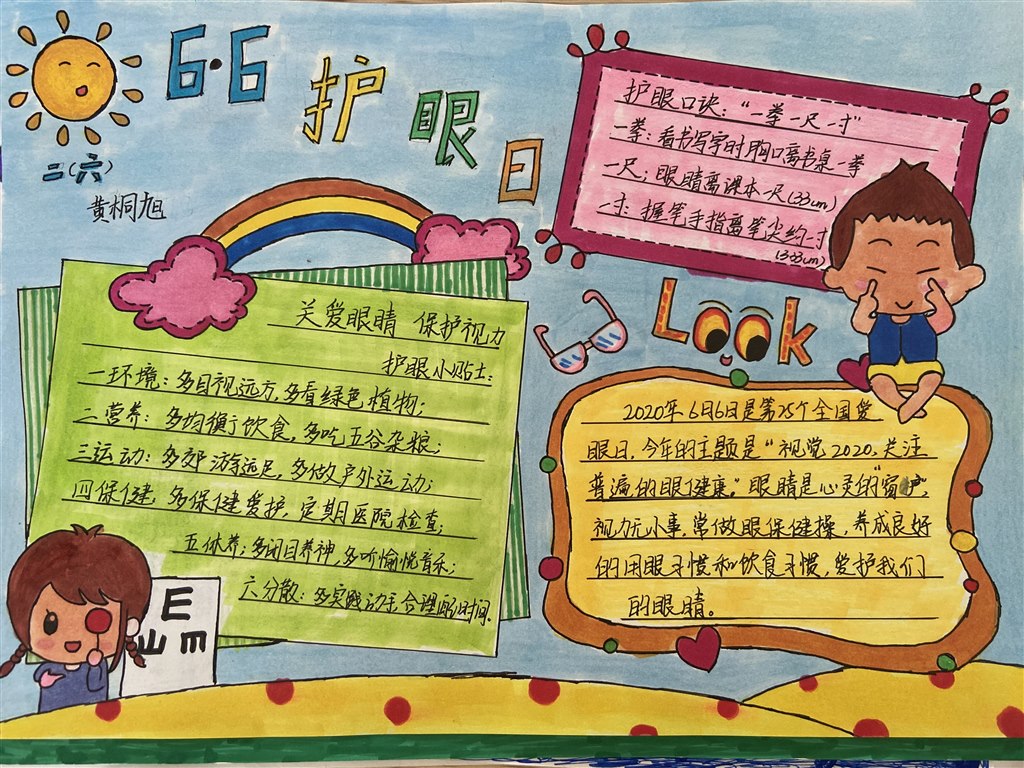 6·6 护眼日
二(六)
黄桐旭
护眼口诀："一拳一尺一寸"
一拳：看书写字时胸口离书桌一拳
一尺；眼睛离课本一尺(33cm)
一寸：握笔手指离笔尖约一寸
(3.33cm)
Look
关爱眼睛 保护视力
护眼小贴士：
一环境：多目视远方，多看绿色植物；
二营养：多均衡饮食，多吃五谷杂粮；
三运动：多郊游远足，多做户外运动；
四保健，多保健爱护，定期医院检查；
五休养；多闭目养神，多听愉悦音乐；
六分散：多实践动手，合理配时间．
E
2020年6月6日是第25个全国爱
眼日，今年的主题是"视觉2020，关注
普遍的眼健康"。眼睛是心灵的"窗户"，
视力无小事，常做眼保健操，养成良好
的用眼习惯和饮食习惯，爱护我们
的眼睛。